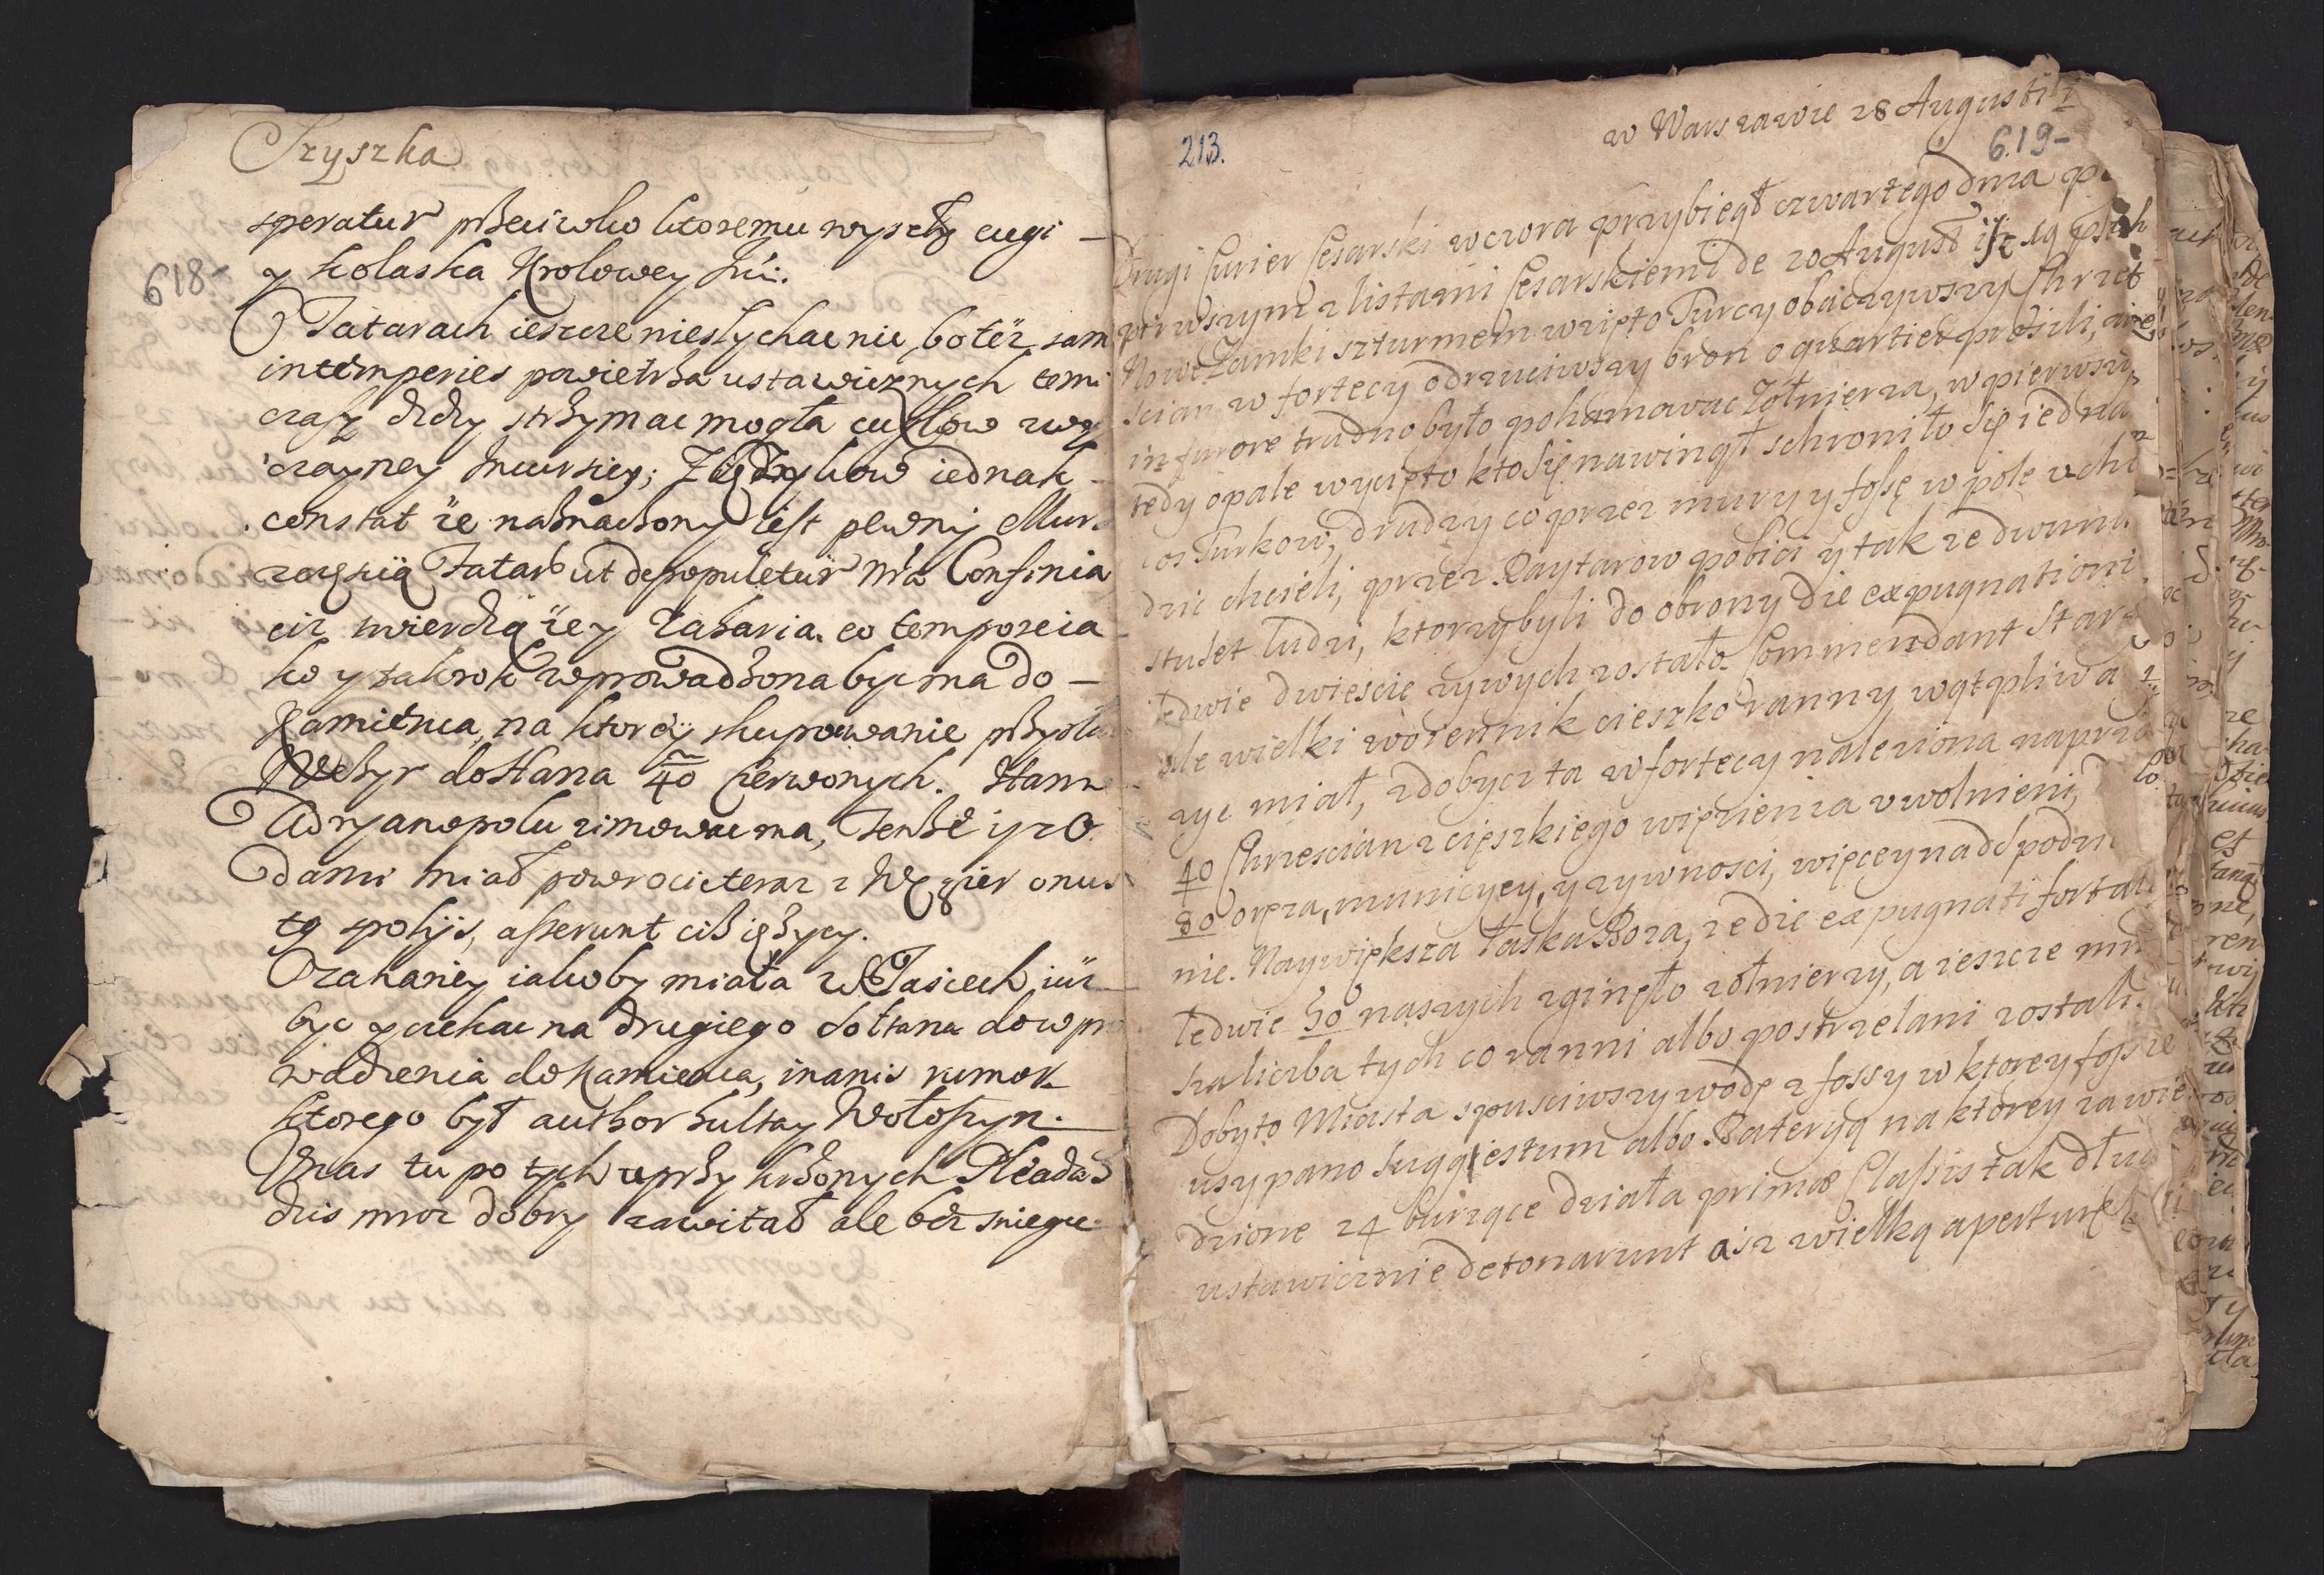 Szyszka
618-
speratur przeciwko ktoremu wyszły cugi –
y kolaska Krolowey Jmi:
O Tatarach ieszcze niesłychac nic, bo też sam
intemperies powietrza ustawicznych temi
czasy strzymac mogła cuglow zwy
czayney Incursiey;
constat że naznaczony iest pewny Mur
Tatar ut depopuletur Nra Confinia
ciż twierdzą że y Zaharia eo tempore ia
ko y zakrok wprowadzona byc ma do –
Kamienca, na ktorey skupowanie przysła
Wezyr do Hana 40 czerwonych. Han w
Adryanopolu zimowac ma, tenże y z O
dami miał powrocic teraz z Węgier onus
tę spolijs, asserunt ciż ięzycy.
O zahariey iakoby miała w Jasiech iuż
byc y czekac na drugiego sołtana do wpro
wadzenia do Kamienca, inanis rumor
ktorego był author hultay Wołoszyn.
U nas tu po tych uprzykrzonych Pleadach
dzis mroz dobry zawitał ale bez sniegu
213.
w Warszawie 28 Augusti
619-
Drugi Curier Cesarski wczora przybiegł czwartego dnia po
pierwszym z listami Cesarskiemi de 20 August iż 19
Nowe Zamki szturmem wzięto Turcy obaczywszy Chrzes
cian w fortecy odrzuciwszy bron o quartier prosili, ale
in furore trudno było pohamowac Zołnierza, w pierwszym
tedy opale wycięto kto się nawinął schroniło się iedna
kos Turkow, drudzy co przez mury y fossę w pole uchο
dzic chcieli, przez Raytarow pobici y tak ze dwuna
stuset ludzi, ktorzy byli do obrony die expugnationi
ledwie dwiescie zywych zostało Commendant star
ale wielki woiennik cieszko ranny wątpliwa
zyc miał, zdobycz ta w fortecy naleziona naprzο
40 Chrzescian z ciężkiego więzienia uwolnieni,
80 oręza, municyey, y zywnosci, więcey nad podzi
nie. Naywiększa łaska Boza, ze die expugnati fortal
ledwie 50 naszych zginęło zołnierzy, a ieszcze mni
sza liczba tych co ranni albo postrzelani zostali.
Dobyto Miasta spusciwszy wodę z fossy w ktorey fossie
usypano suggiestum albo Bateryą na ktorey zawie
dzione 24 burzące działa primae Classis tak dłu
ustawicznie detonarunt asz wielką aperturę